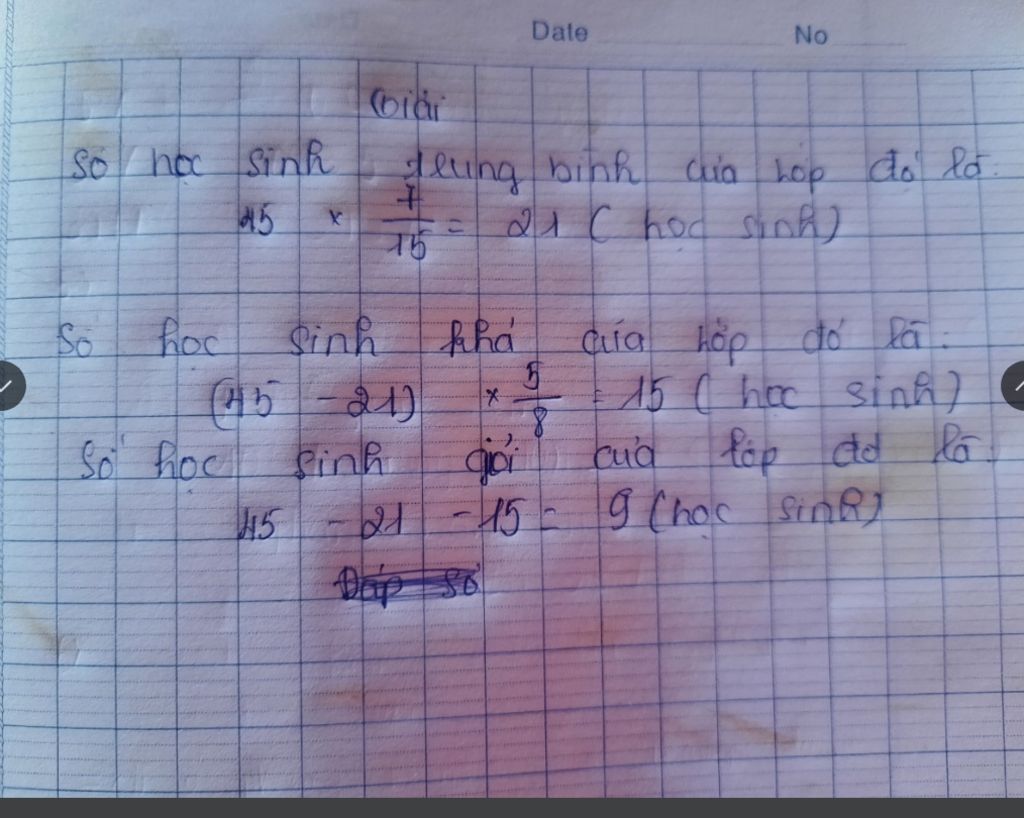 Date No
Giải
Số học sinh trung bình của lớp đó là:
45 × 7/15 = 21 (học sinh)
Số học sinh khá của lớp đó là:
(45 - 21) × 5/8 = 15 (học sinh)
Số học sinh giỏi của lớp đó là:
45 - 21 - 15 = 9 (học sinh)
Đáp số